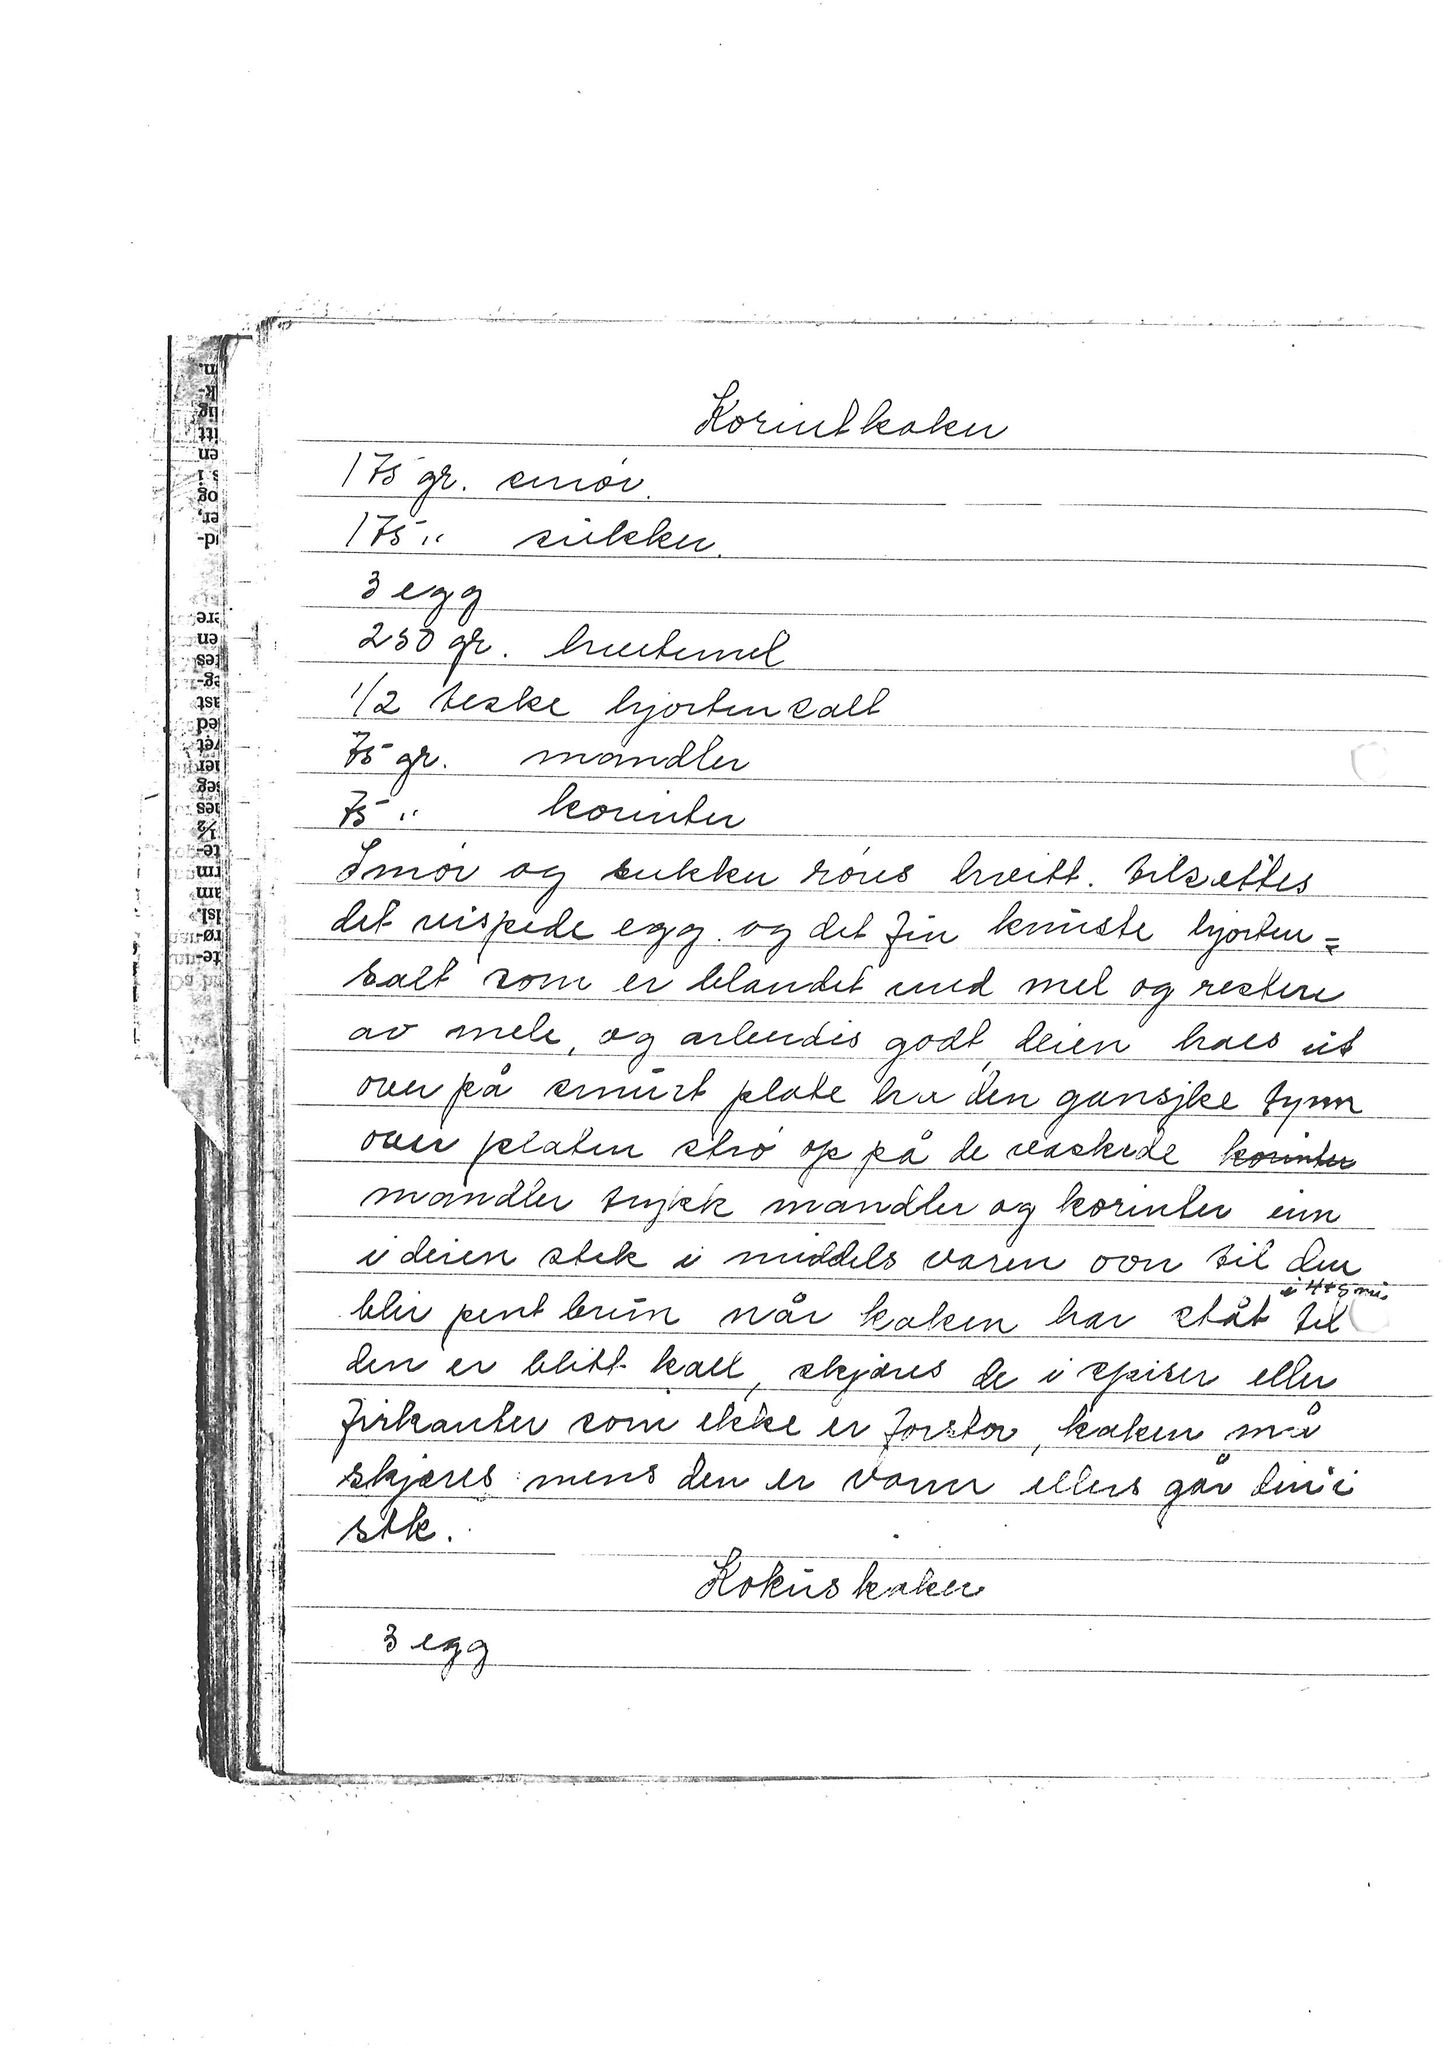 Korintkaker
175 gr. smør.
175 " sukker.
3 egg
250 gr. hvetemel
1/2 teske hjortensalt
75 gr. mandler
75 " korinter
Smør og sukker røres hvitt. tilsettes
det vispede egg. og det fin knuste hjorten=
salt som er blandet med mel og restere
av mele, og arbeides godt, deien haes ut
over på smurt plate ha den gansjke tynn
over platen strø op på de vaskede korinter
mandler trykk mandler og korinter inn
i deien stek i middels varm ovn til den
i 4+5 mi.
blir pent brun når kaken har ståt til
den er blitt kall, skjæres de i spiser eller
firkanter som ikke er forstor, kaken må
skjæres mens den er varm ellers går den i
stk.
Kokuskaker
3 egg
n.
k-
lig
itt
en
s i
og
er,
d-
ere
en
tes
eg-
ast
ed
vet
ier
seg
nes
½
te-
rm
am
lsl.
rø-
te-